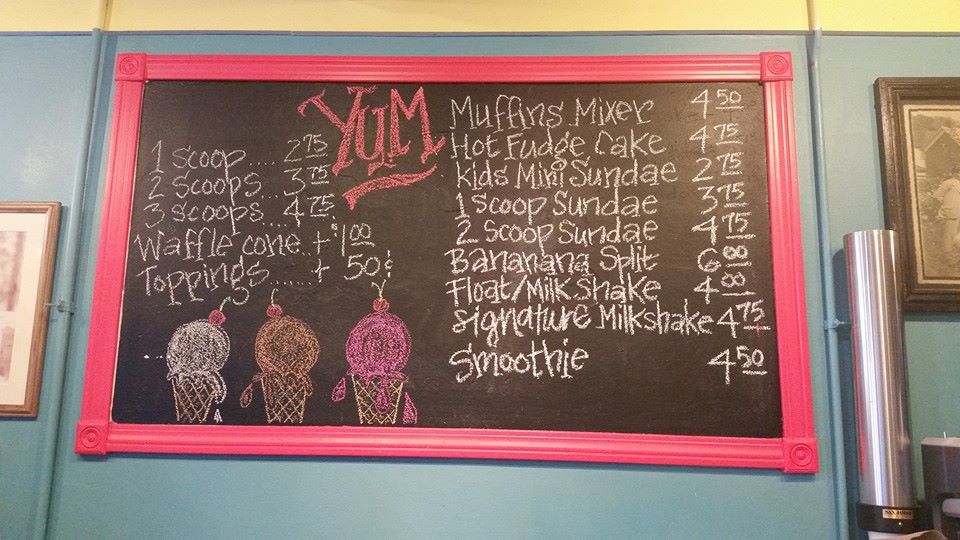 YUM
1 scoop.... 2 75
2 scoops.. 3 75
3 scoops. 4 75
Waffle cone.. + $1 00
Toppings....... + 50¢
Muffins Mixer 4 50
Hot Fudge Cake 4 75
Kids Mini Sundae 2 75
1 scoop Sundae 3 75
2 scoop Sundae 4 75
Bananana Split 6 00
Float/Milk Shake 4 00
Signature Milkshake 4 75
Smoothie 4 50